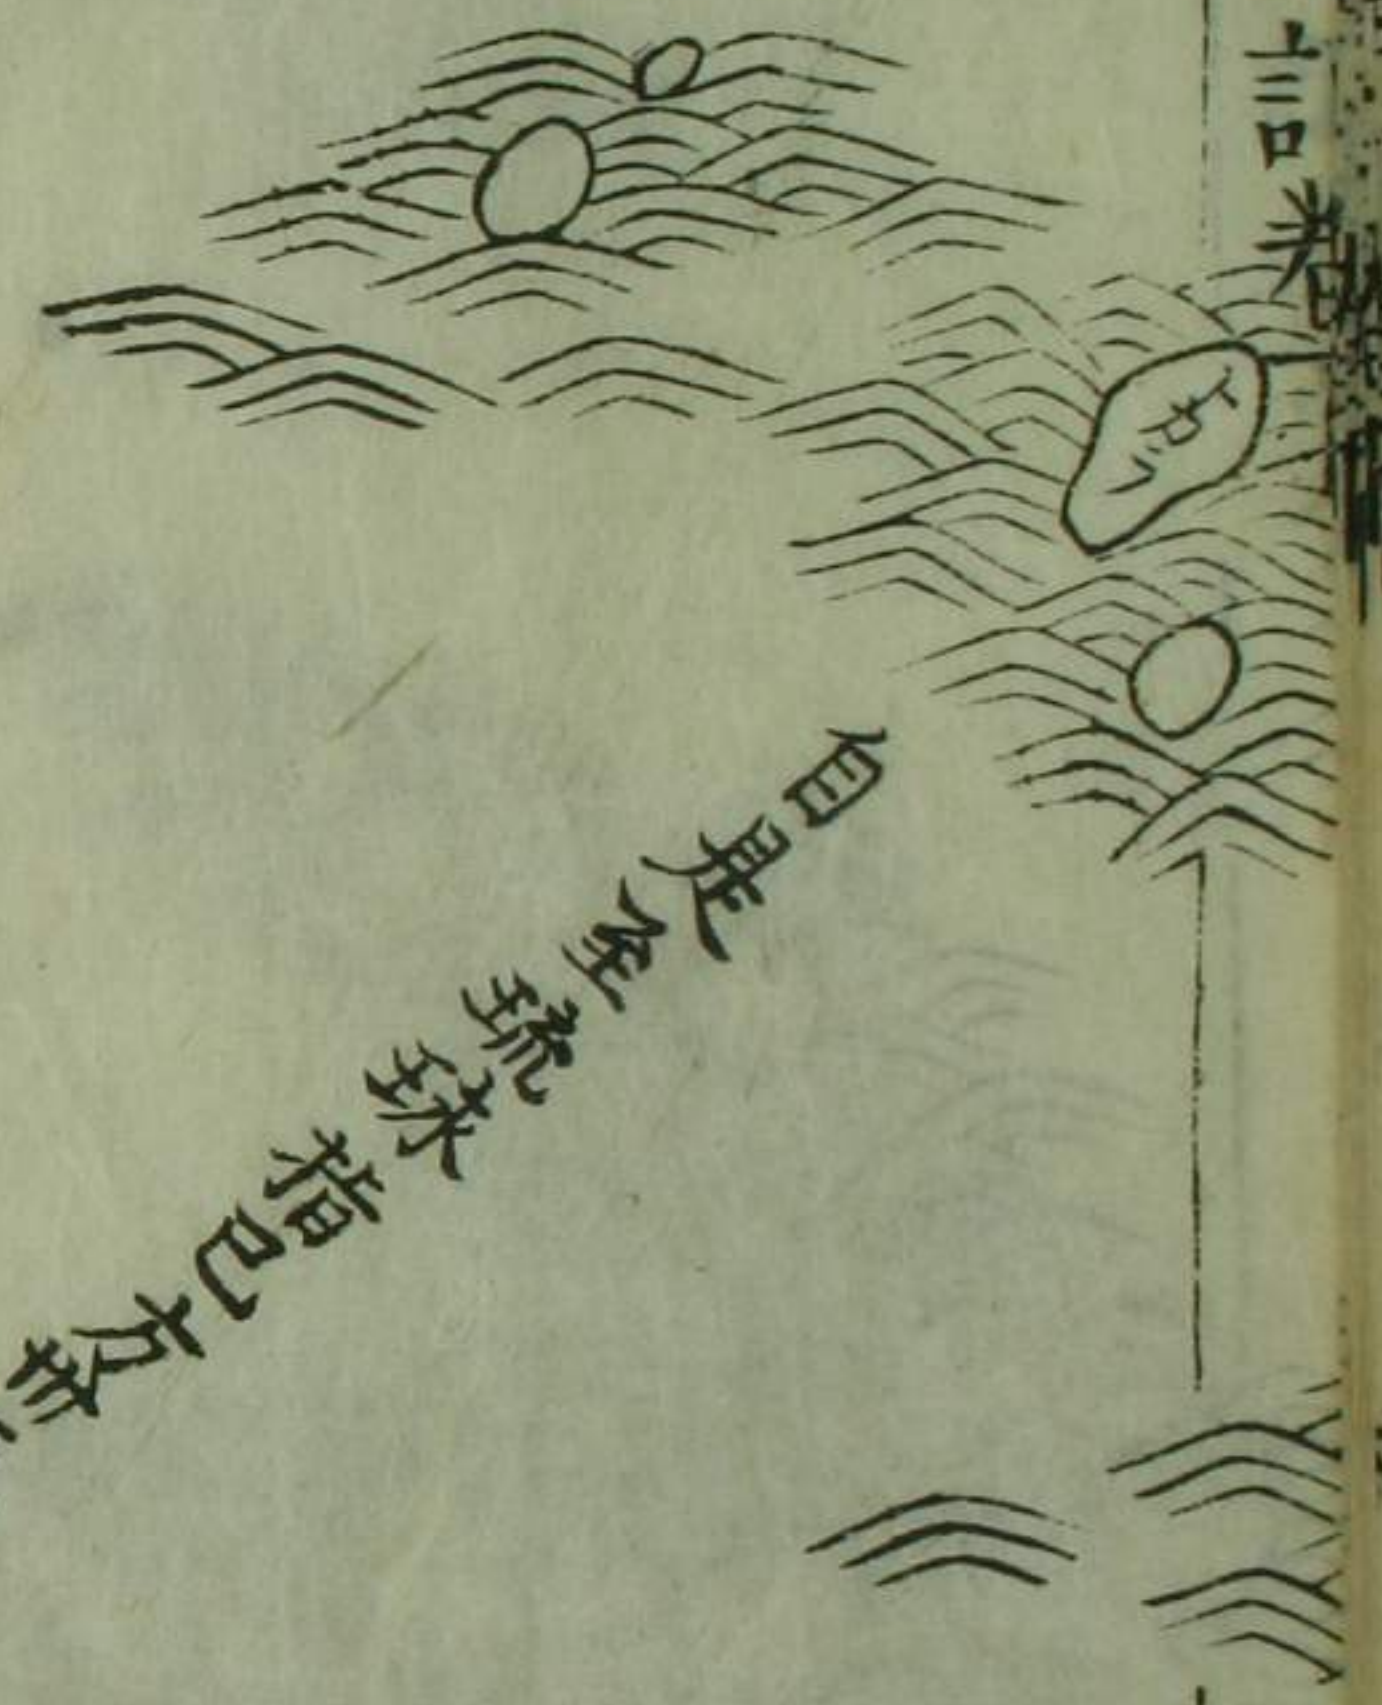 言
トカラ
自是至琉球指巳方